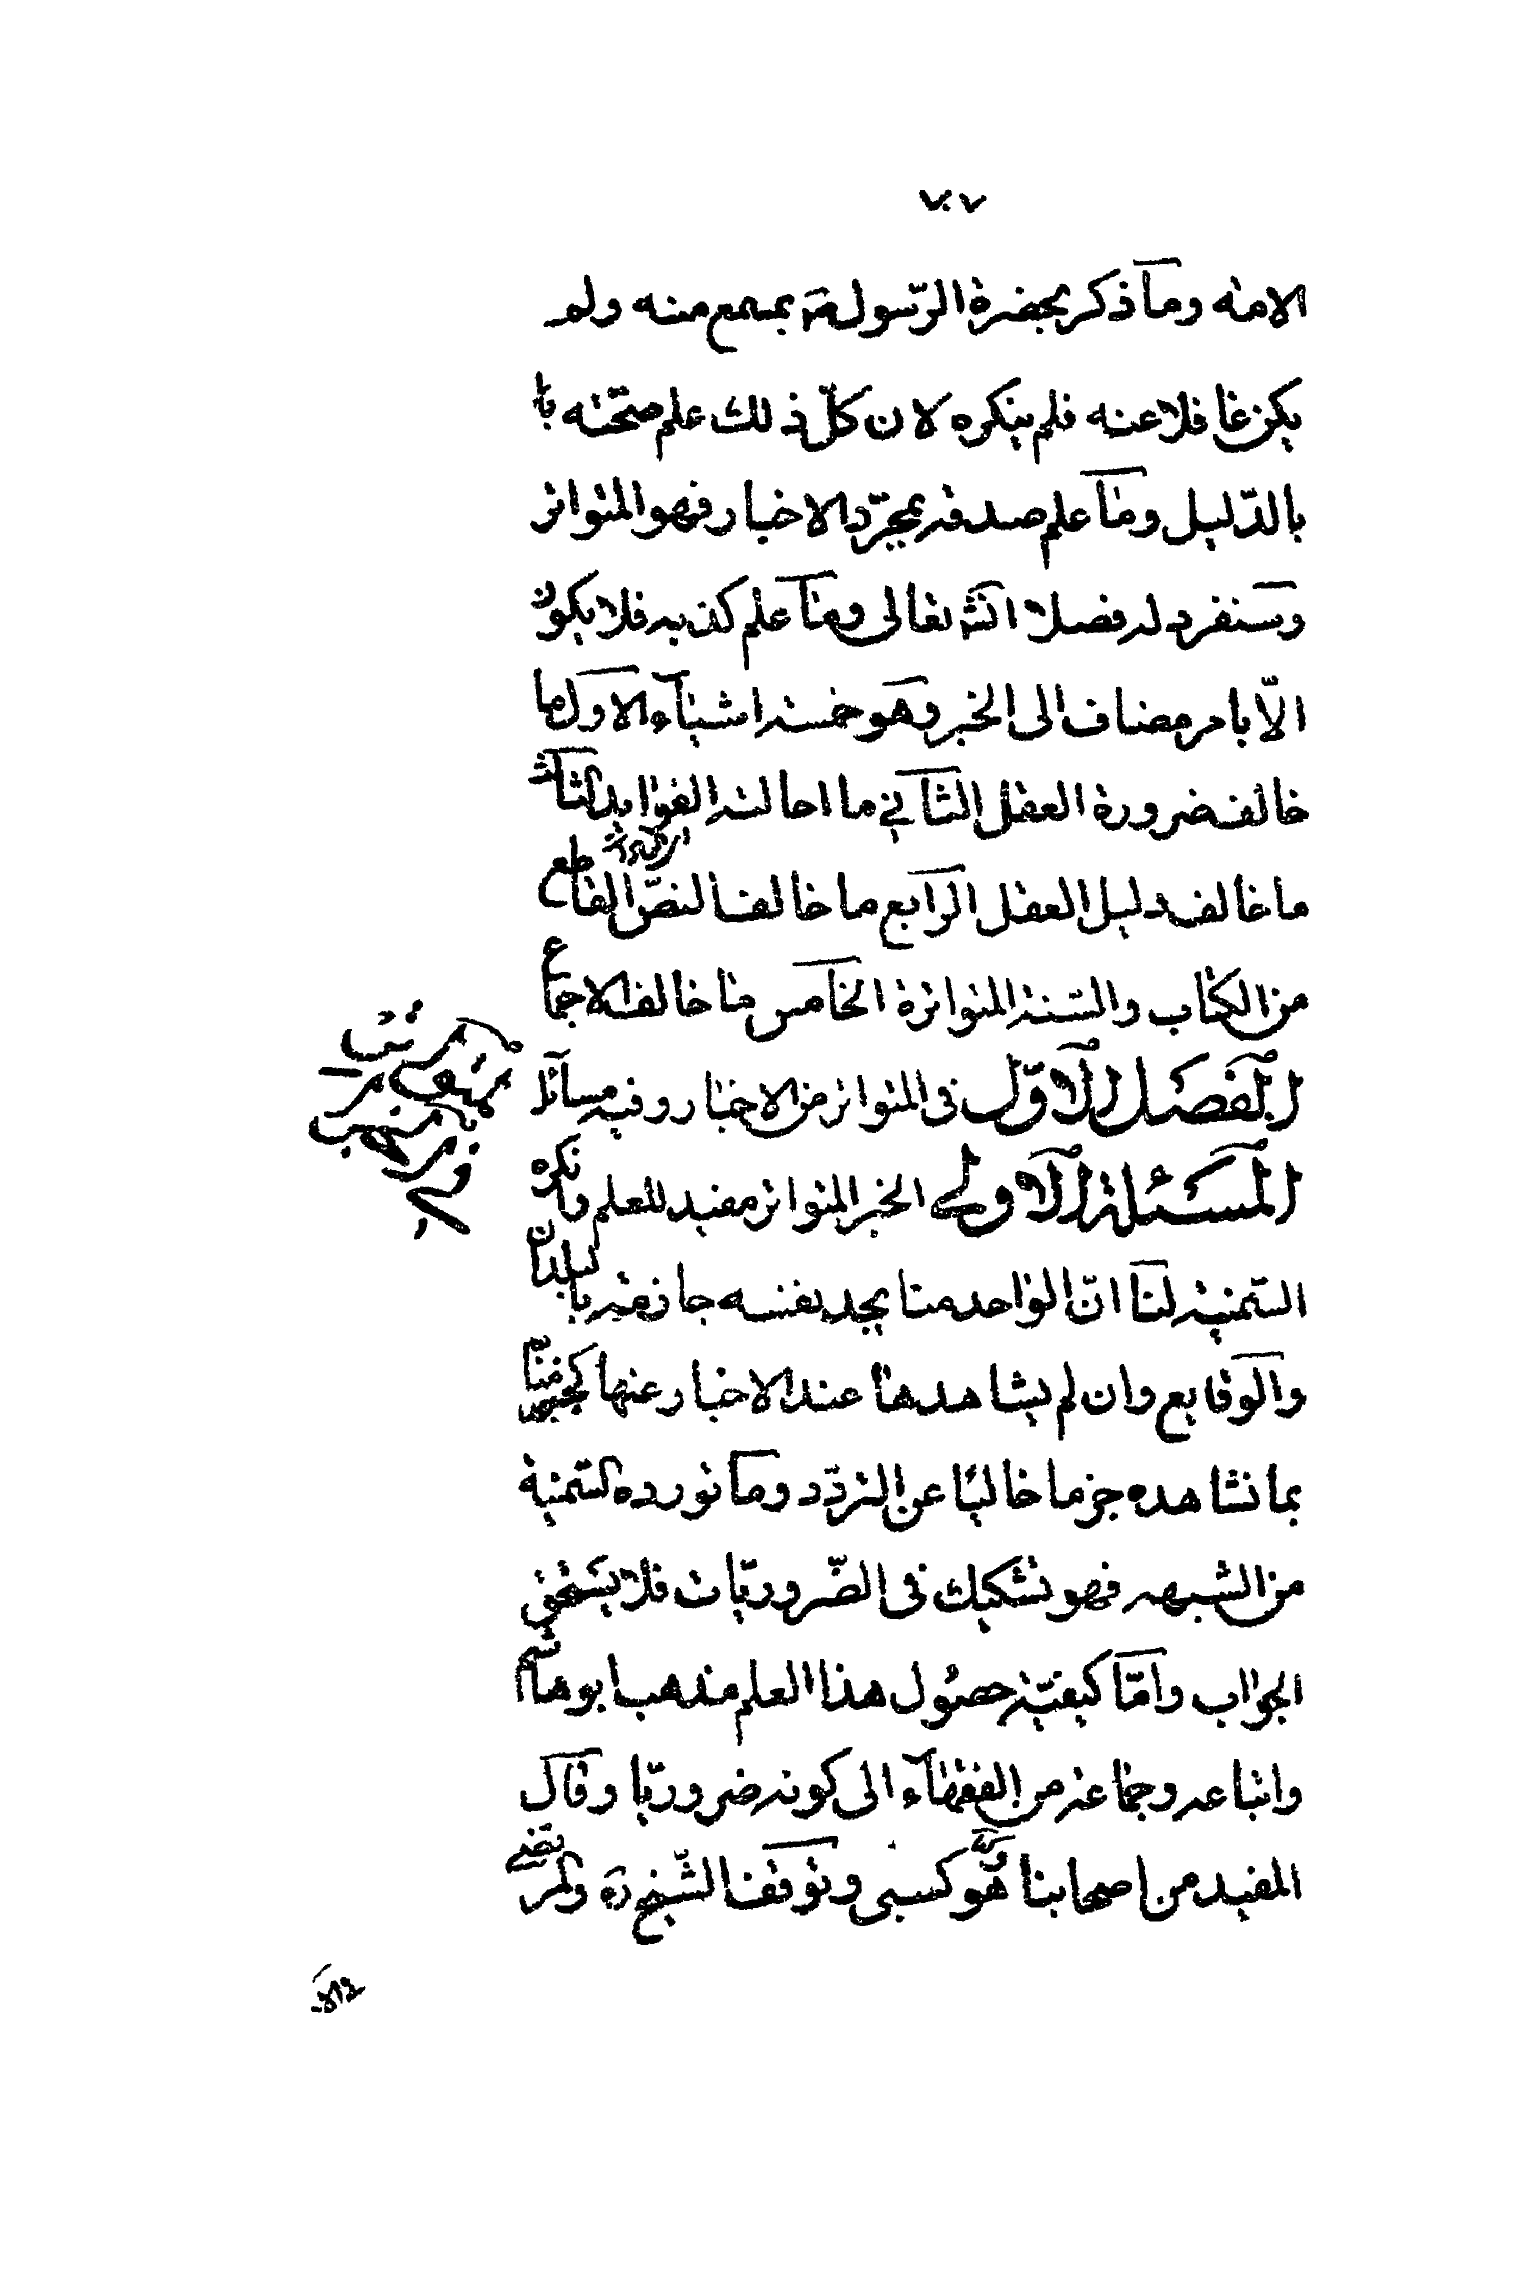 ٧٧
الامه وما ذكر بحضرة الرسول ص بمسمع منه ولم
يكن غافلا عنه فلم ينكره لان كلّ ذلك علم صحّته
بالدّليل وما علم صدقه بمجرّد الاخبار فهو المتواتر
وسنفرد له فصلا انش تعالى وما علم كذبه فلا يكون
الّا بامر مضاف الى الخبر وهو خمسة اشيآء الاول ما
خالف ضرورة العقل الثانى ما احالته العوايد الثالث
ما خالف دليل العقل الرابع ما خالف النصّ القاطع
من الكتاب والسّنة المتواترة الخامس ما خالف الاجماع
الفصل الاوّل فى المتواتر من الاخبار وفيه مسائل
المسئلة الاولى الخبر المتواتر مفيد للعلم وانكره
السّمنية لنا انّ الواحد منا يجد نفسه جازمة بالبلدان
والوقايع وان لم يشاهدها عند الاخبار عنها كجزمنا
بما نشاهده جزما خاليًا عن التردّد وما تورده السّمنية
من الشبهه فهو تشكيك فى الضّروريّات فلا يستحق
الجواب وامّا كيفيّة حصول هذا العلم فذهب ابو هاشم
واتباعه وجماعة من الفقهآء الى كونه ضروريّا وقال
المفيد من اصحابنا هو كسبى وتوقف الشّيخ ره والمرتضى